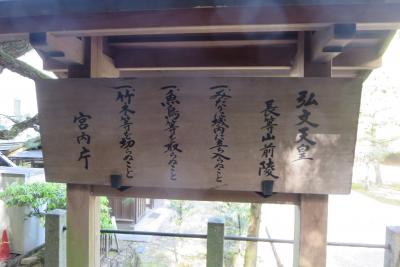 弘文天皇
長等山前陵
一みだりに域内に立入らぬこと
一魚鳥等を取らぬこと
一竹木等を切らぬこと
宮内庁